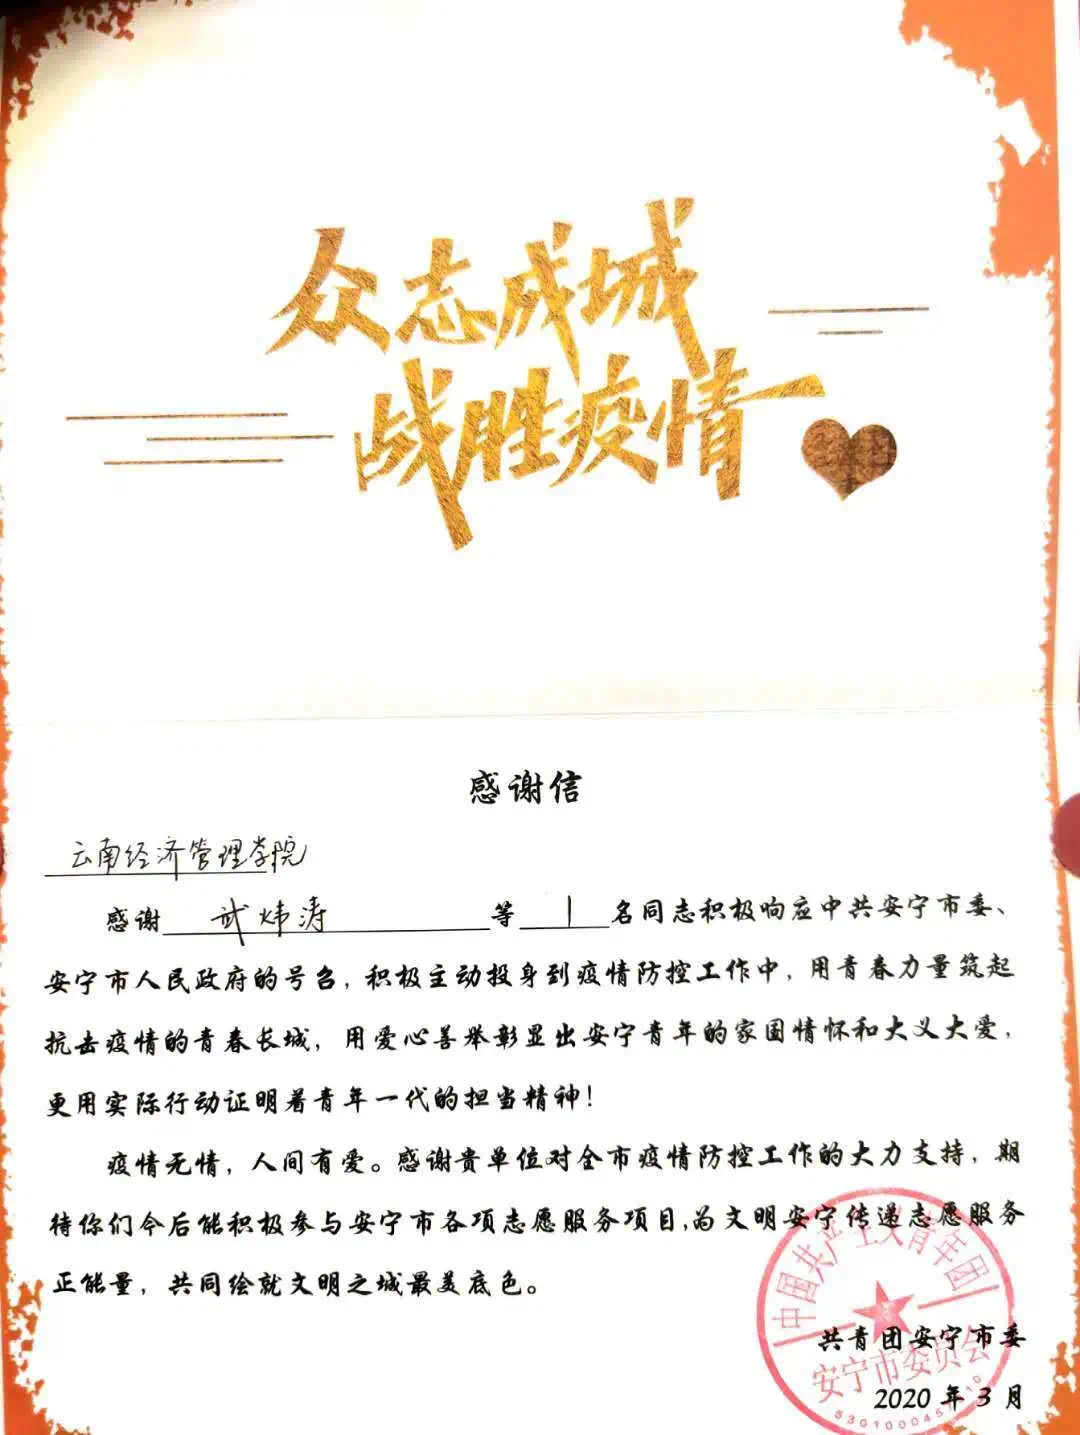 众志成城
战胜疫情
感谢信
云南经济管理学院
感谢 武炜涛 等 1 名同志积极响应中共安宁市委、
安宁市人民政府的号召，积极主动投身到疫情防控工作中，用青春力量筑起
抗击疫情的青春长城，用爱心善举彰显出安宁青年的家国情怀和大义大爱，
更用实际行动证明着青年一代的担当精神！
疫情无情，人间有爱。感谢贵单位对全市疫情防控工作的大力支持，期
待你们今后能积极参与安宁市各项志愿服务项目，为文明安宁传递志愿服务
正能量，共同绘就文明之城最美底色。
中国共产主义青年团
共青团安宁市委
安宁市委员会
2020年3月